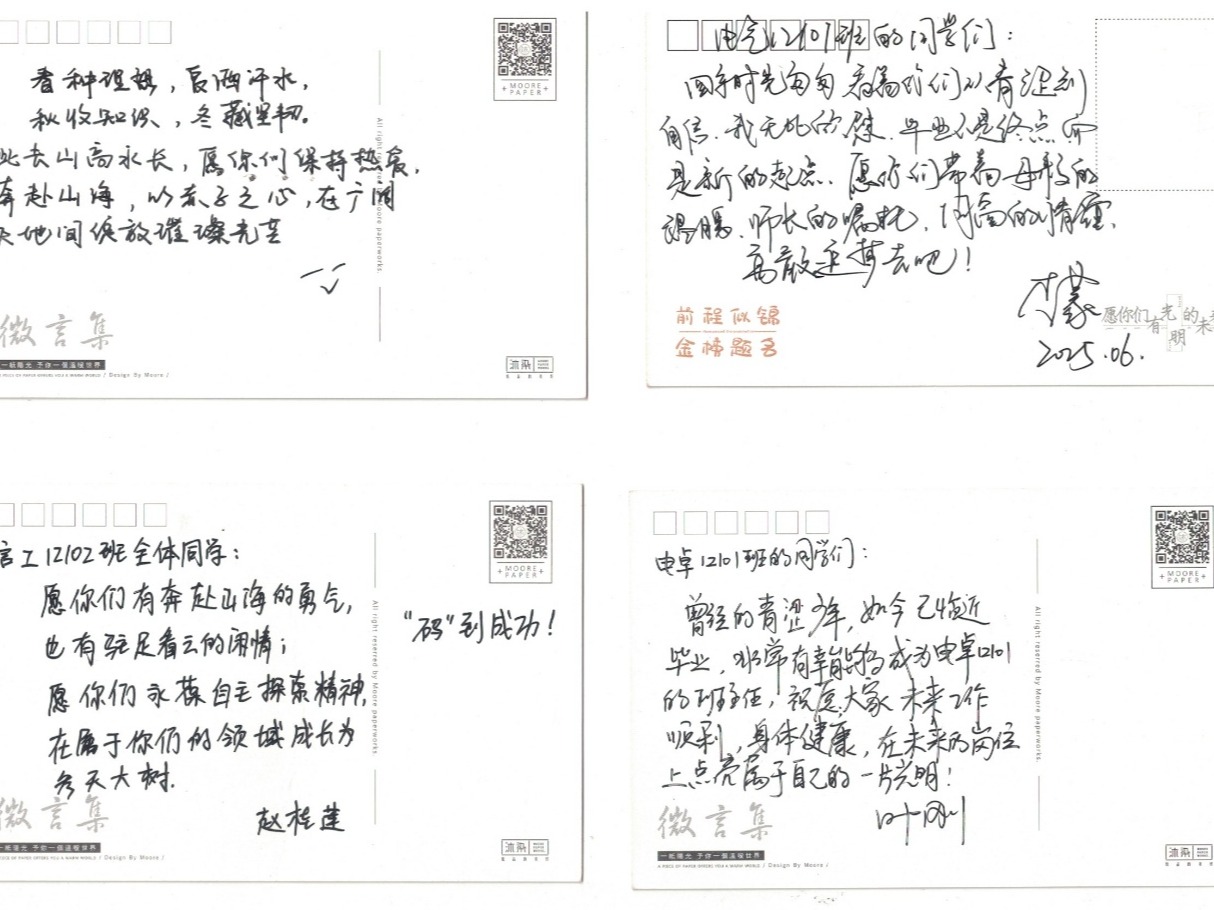 春种理想，夏洒汗水，
秋收知识，冬藏坚韧。
此去山高水长，愿你们保持热爱，
奔赴山海，以赤子之心，在广阔
天地间绽放璀璨光芒
All right reserred by Moore paperworks.
MOORE
PAPER
微言集
一纸曙光 予你一個溫暖世界
A PIECE OF PAPER OFFERS YOU A WARM WORLD / Design By Moore /
沐染
电气12101班的同学们：
四年时光匆匆 看着你们从青涩到
自信，我无比欣慰。毕业不是终点 而
是新的起点。愿你们带着母校的
温暖、师长的嘱托、同窗的情谊，
勇敢追梦去吧！
李蒙
2025.06.
前程似锦
金榜题名
愿你们有光明的未
言工12102班全体同学：
愿你们有奔赴山海的勇气，
也有驻足看云的闲情；
愿你们永葆自主探索精神，
在属于你们的领域成长为
参天大树.
赵桂莲
"码"到成功！
All right reserred by Moore paperworks.
MOORE
PAPER
微言集
一纸曙光 予你一個溫暖世界
PIECE OF PAPER OFFERS YOU A WARM WORLD / Design By Moore /
沐染
电卓12101班的同学们：
曾经的青涩少年，如今已临近
毕业，非常有幸能够成为电卓12101
的班主任，祝愿大家未来工作
顺利，身体健康，在未来的岗位
上点亮属于自己的一片光明！
叶刚
All right reserred by Moore paperworks.
MOORE
PAPER
微言集
一纸曙光 予你一個溫暖世界
A PIECE OF PAPER OFFERS YOU A WARM WORLD / Design By Moore /
沐染